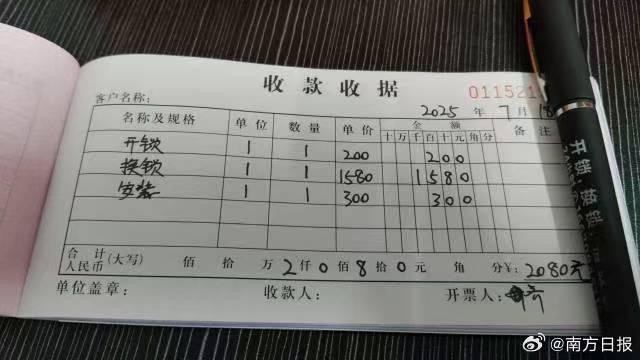 收款收据
011521
客户名称:
2025 年 7 月 18
名称及规格 单位 数量 单价 金额 备注
十万千百十元角分
开锁 1 1 200 200
换锁 1 1 1580 1580
安装 1 1 300 300
合计
人民币(大写) 佰 拾 万 2 仟 0 佰 8 拾 0 元 角 分¥: 2080元
单位盖章: 收款人: 开票人:
开锁·换锁
@南方日报